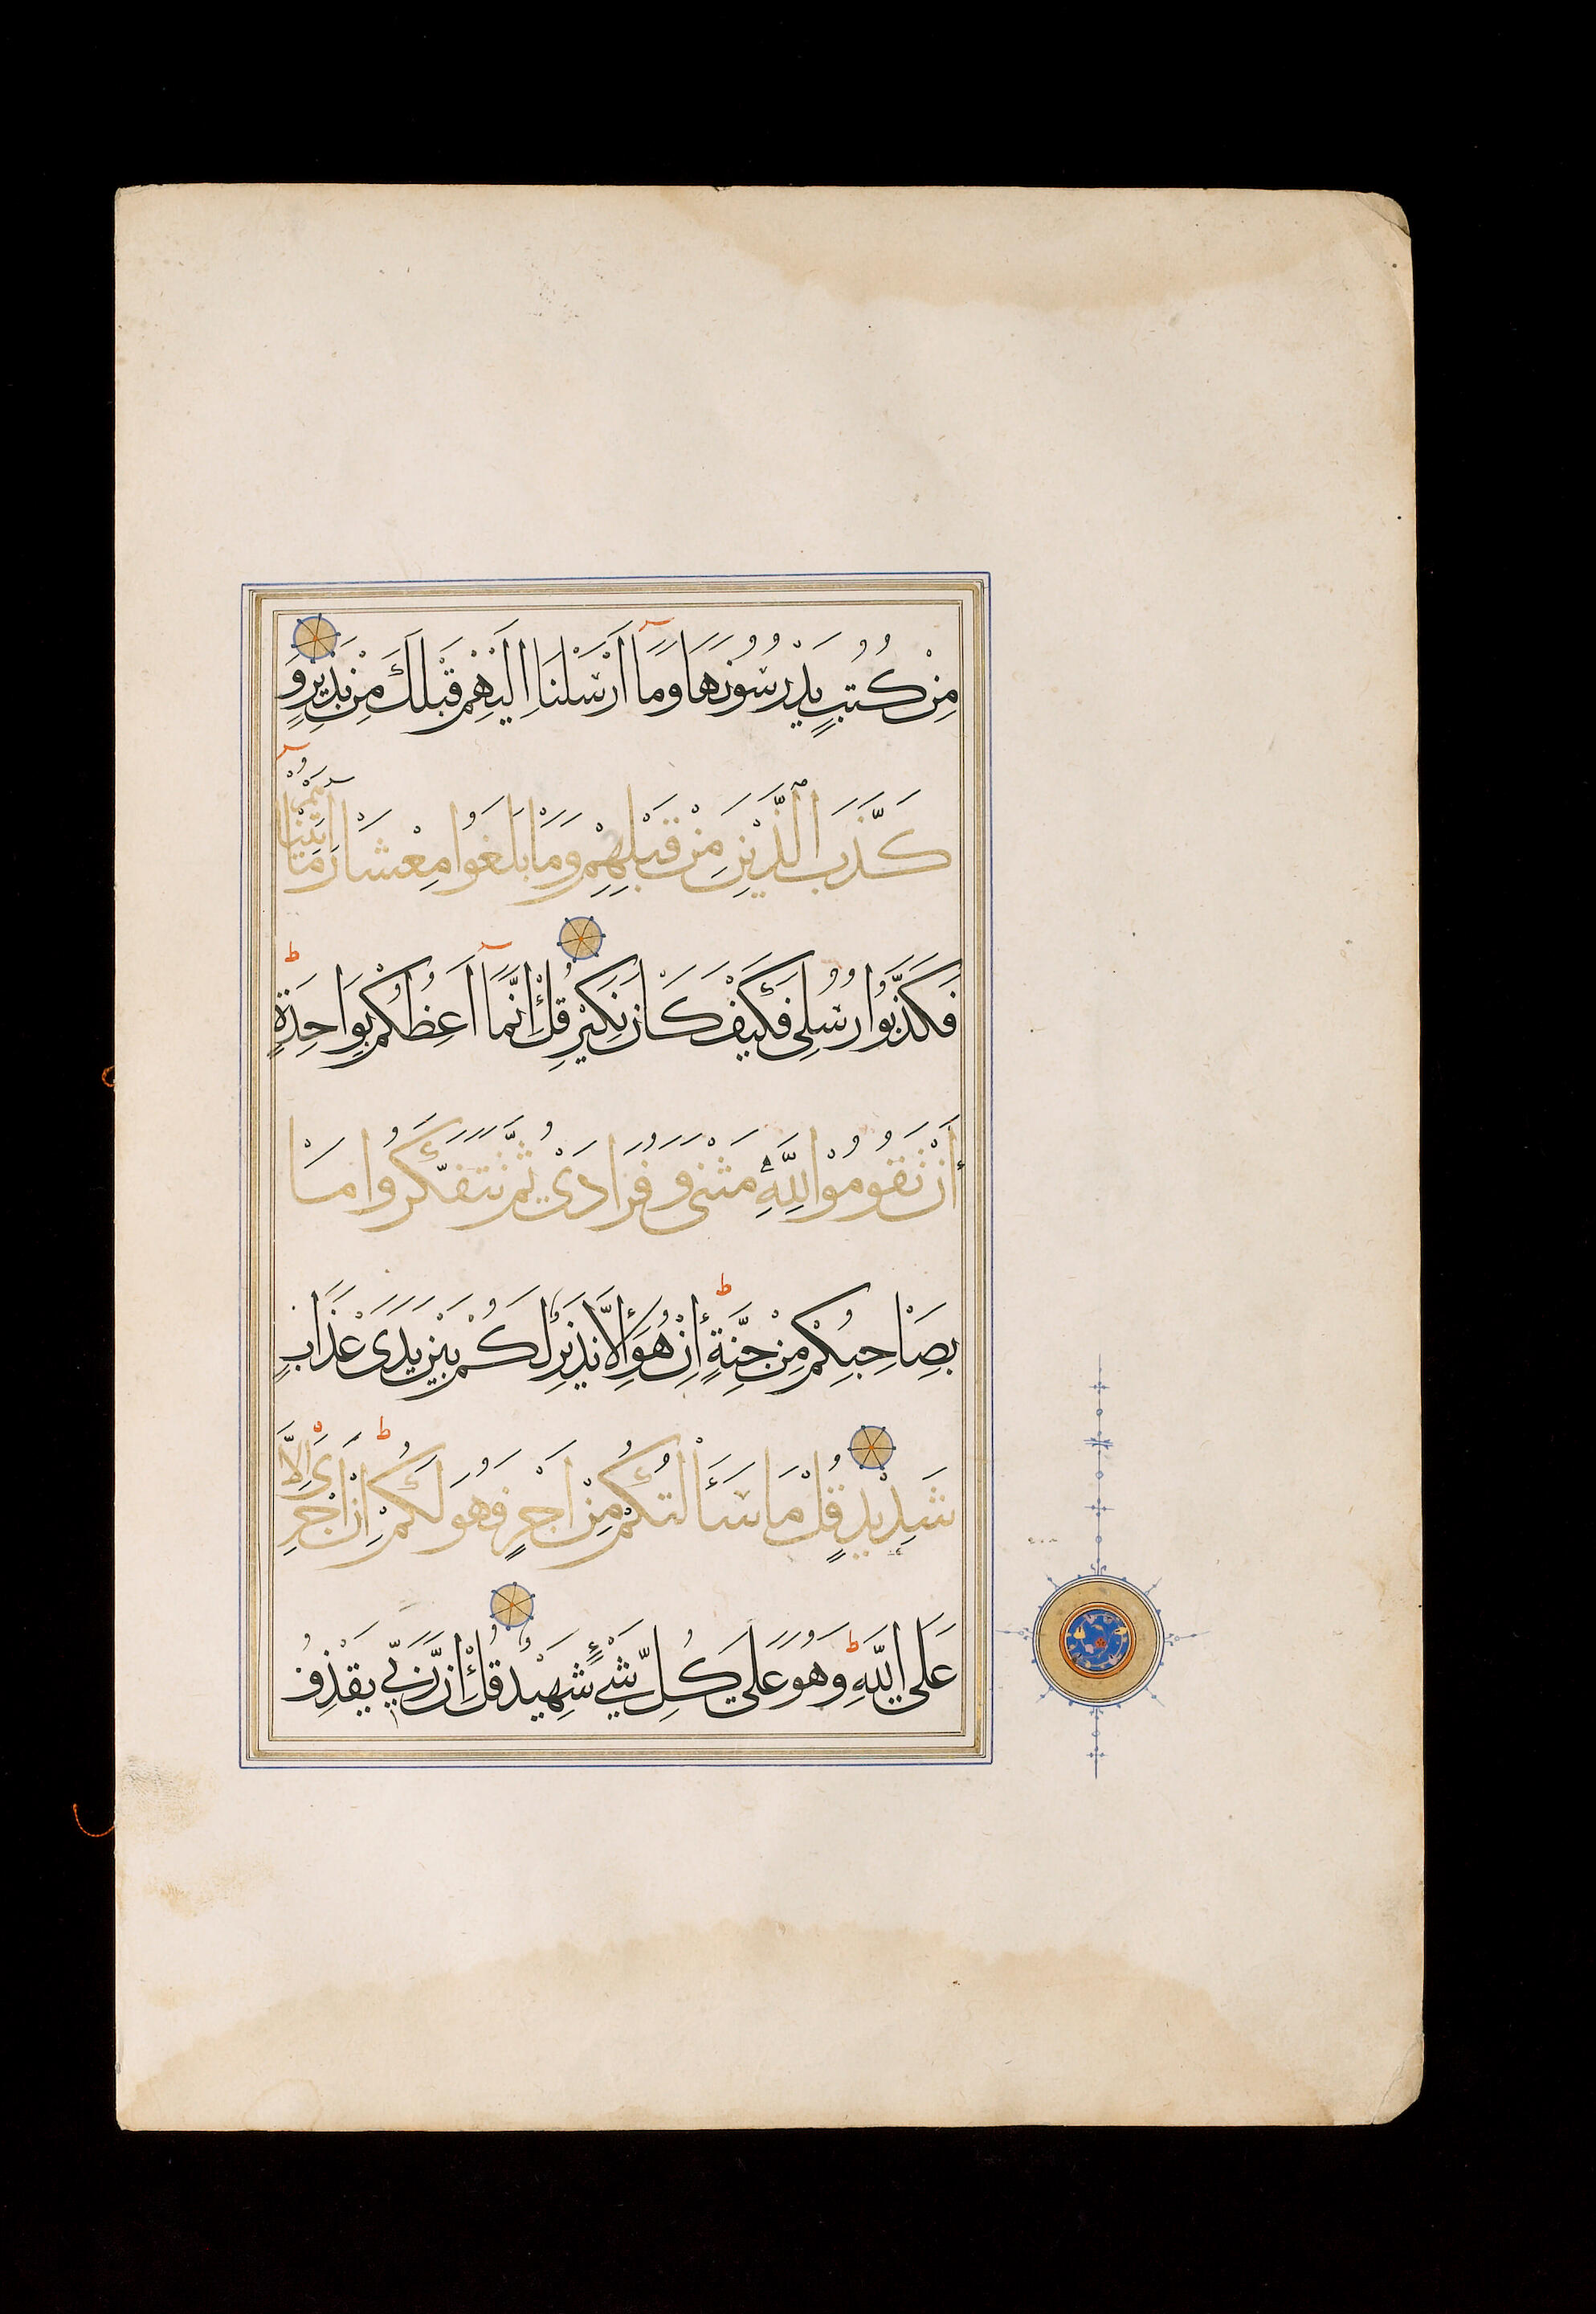 مِنْ كُتُبٍ يَدْرُسُونَهَا وَمَا أَرْسَلْنَا إِلَيْهِمْ قَبْلَكَ مِنْ نَذِيرٍ وَ
كَذَّبَ الَّذِينَ مِنْ قَبْلِهِمْ وَمَا بَلَغُوا مِعْشَارَ مَا آتَيْنَاهُمْ
فَكَذَّبُوا رُسُلِي فَكَيْفَ كَانَ نَكِيرِ قُلْ إِنَّمَا أَعِظُكُمْ بِوَاحِدَةٍ ط
أَنْ تَقُومُوا لِلَّهِ مَثْنَى وَفُرَادَى ثُمَّ تَتَفَكَّرُوا مَا
بِصَاحِبِكُمْ مِنْ جِنَّةٍ ط إِنْ هُوَ إِلَّا نَذِيرٌ لَكُمْ بَيْنَ يَدَيْ عَذَابٍ
شَدِيدٍ قُلْ مَا سَأَلْتُكُمْ مِنْ أَجْرٍ فَهُوَ لَكُمْ ط إِنْ أَجْرِيَ إِلَّا
عَلَى اللَّهِ ط وَهُوَ عَلَى كُلِّ شَيْءٍ شَهِيدٌ قُلْ إِنَّ رَبِّي يَقْذِفُ